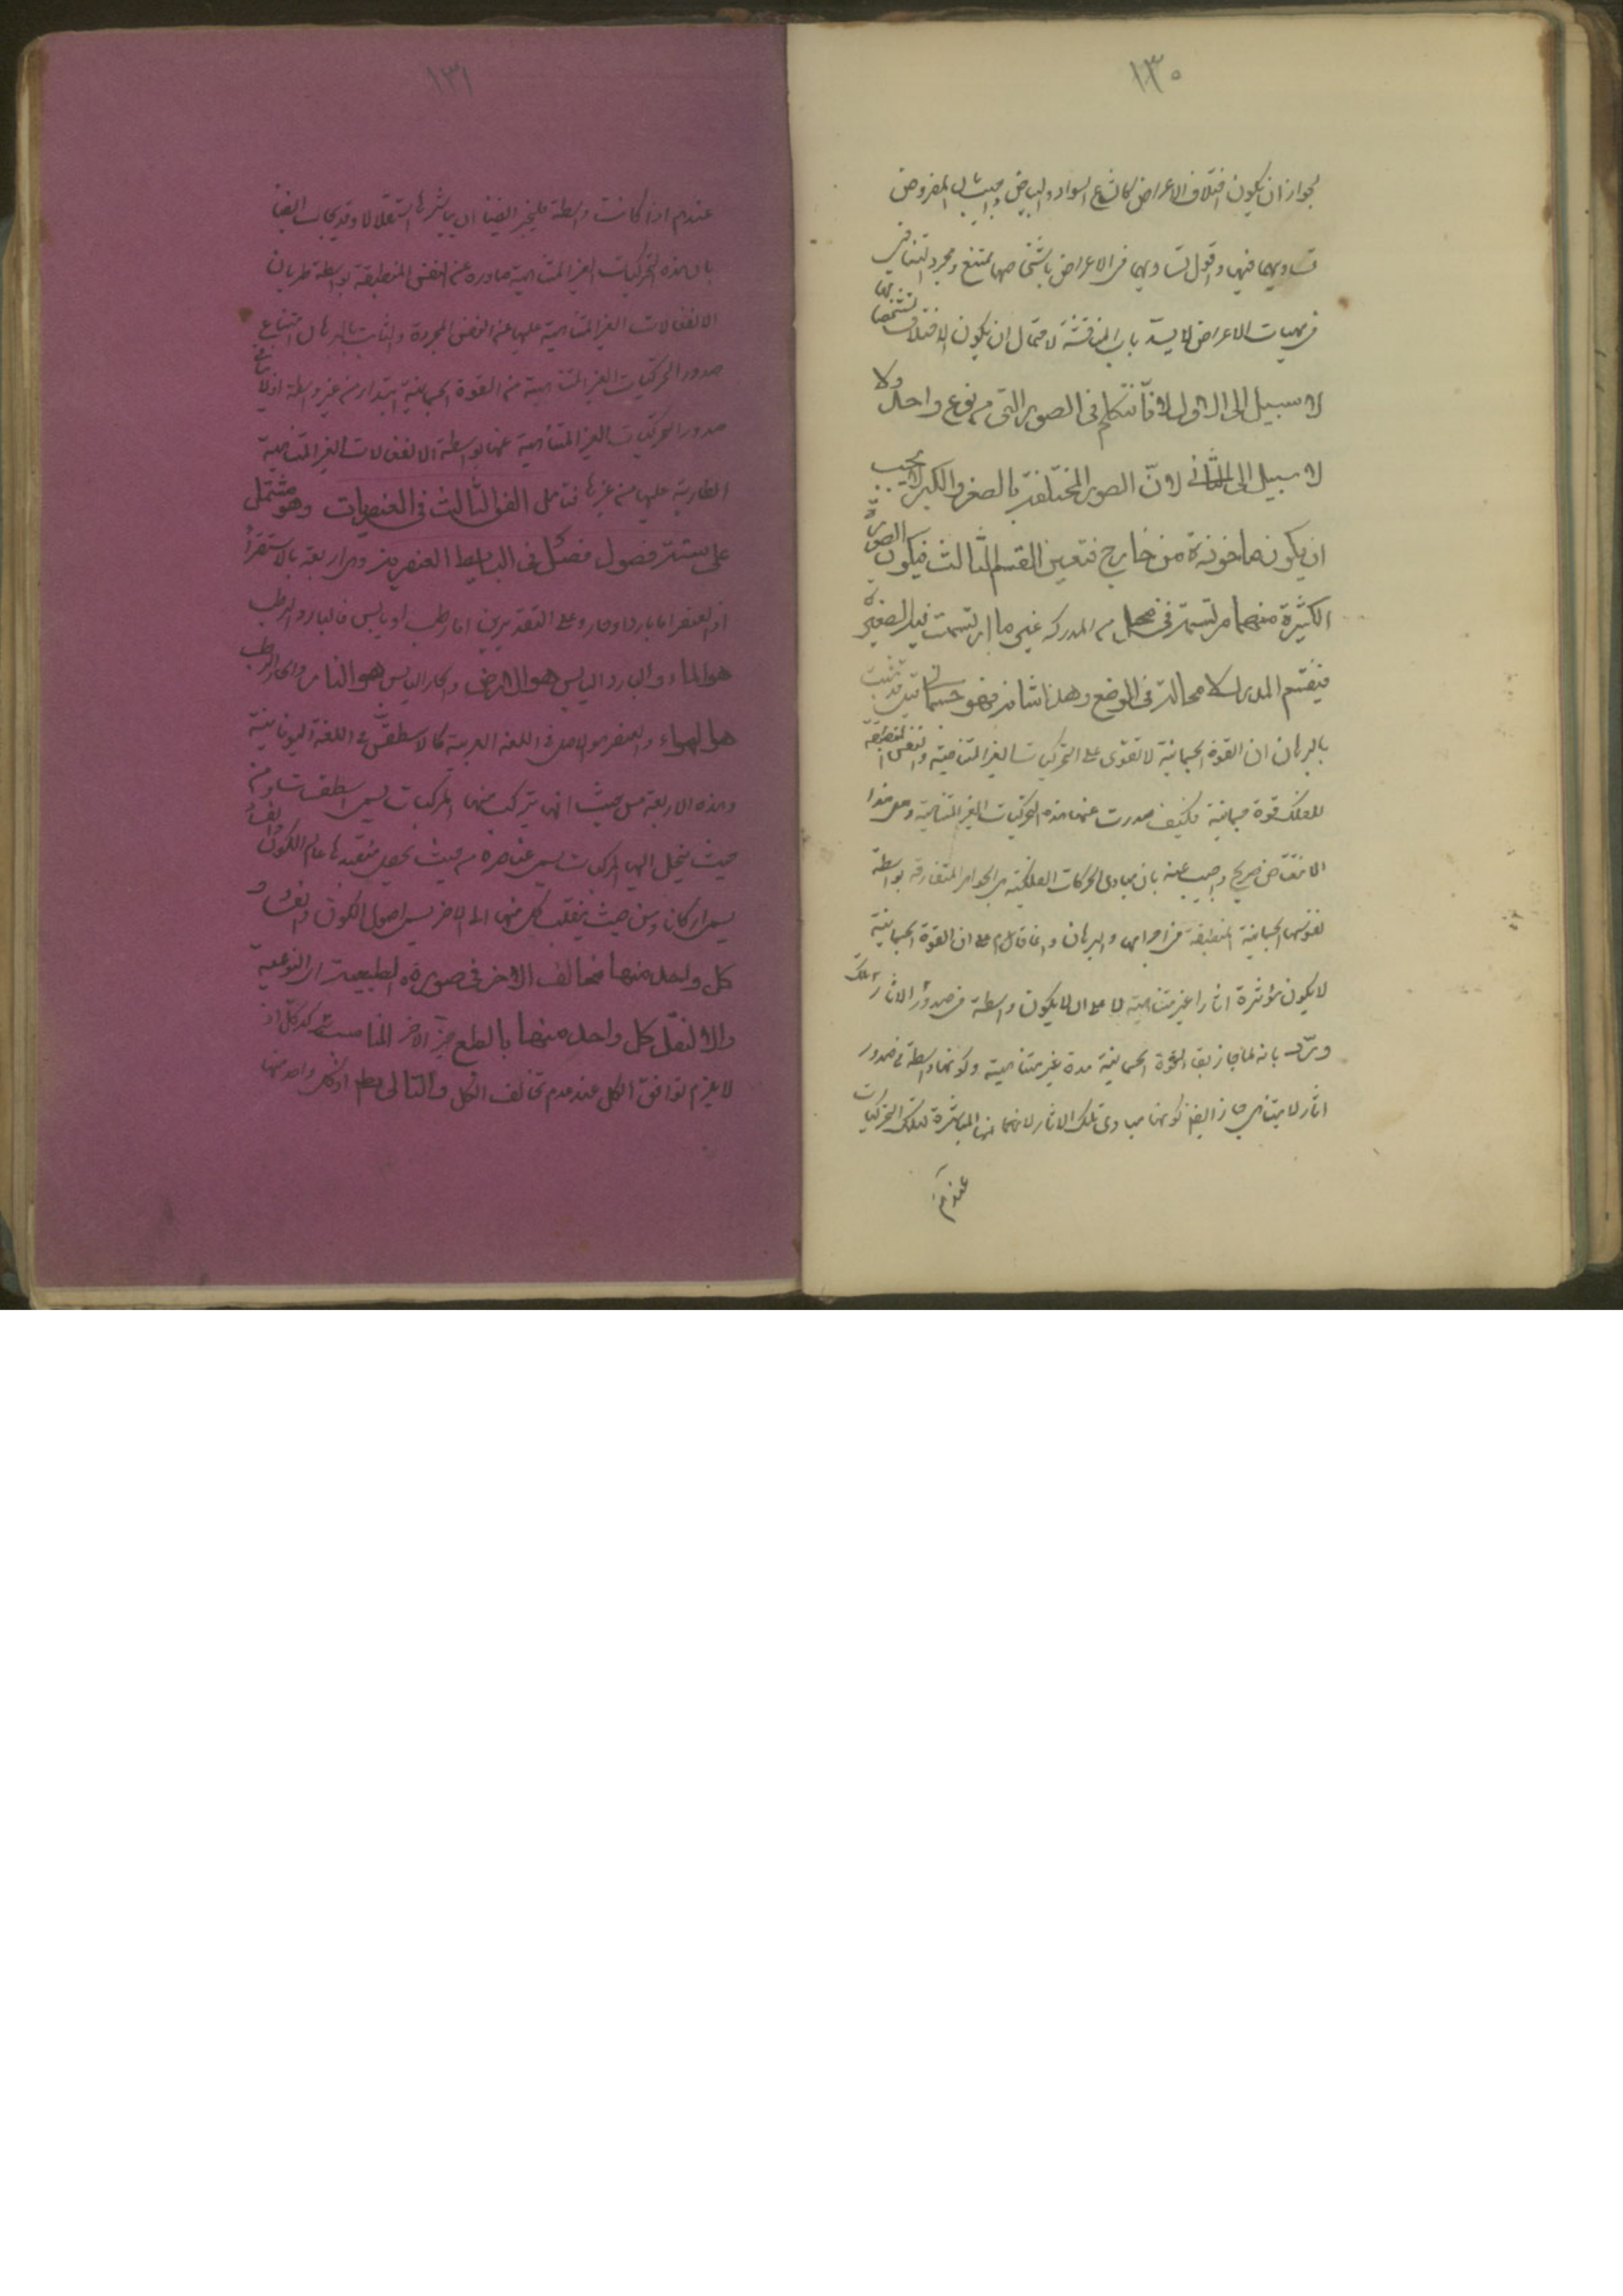 ١٣٠
لجواز ان يكون اختلاف الاعراض كانواع السواد والبياض المفروض
تساويهما فيها واقول تساويهما في الاعراض باشخاصها ممتنع ومجرد التنافي
في مهيات الاعراض لا يسد باب المناقشة لاحتمال ان يكون الاختلاف لتشخصاتها
لا سبيل الى الاول لانا نتكلم في الصور التي من نوع واحد ولا
لا سبيل الى الثاني لان الصور المختلفة بالصغر والكبر لا يجب
ان يكون ماخوذة من خارج فتعين القسم الثالث فيكون الصورة
الكثيرة منهما مرتسمة في محل من المدركة غير ما ارتسمت فيه الصغيرة
فينقسم المدرك لا محالة في الوضع وهذا شانه فهو جسماني قد ثبت
بالبرهان ان القوة الجسمانية لا تقوى على التحريكات الغير المتناهية والنفس المنطبقة
للفلك قوة جسمانية فكيف صدرت عنها هذه التحريكات الغير المتناهية وهل هذا
الا تناقض صريح واجيب عنه بان مبادى الحركات الفلكية هى الجواهر المتفارقة بواسطة
نفوسها الجسمانية المنطبقة في اجرامها والبرهان وانما قام على ان القوة الجسمانية
لا يكون مؤثرة اثارا غير متناهية لا على ان لا يكون واسطة في صدور الاثار تلك
ورد بانه لما جاز بقاء القوة الجسمانية مدة غير متناهية وكونها واسطة في صدور
اثار لا يتناهى جاز ايضا كونها مبادى تلك الاثار لانها المباشرة لتلك التحريكات
عندهم
١٣١
عندهم اذا كانت واسطة فليجز ايضا ان يباشرها استقلالا وقد يجاب ايضا
بان هذه التحريكات الغير المتناهية صادرة عن النفس المنطبقة بواسطة طريان
الانفعالات الغير المتناهية عليها عن النفس المجردة والثابت بالبرهان امتناع
صدور التحريكات الغير المتناهية من القوة الجسمانية ابتداء من غير واسطة اذ لا ينافي
صدور التحريكات الغير المتناهية عنها بواسطة الانفعالات الغير المتناهية
الطارية عليها من غيرها فتامل الفن الثالث في العنصريات وهو مشتمل
على ستة فصول فصل في البسايط العنصرية وهي اربعة بالاستقراء
اذ العنصر اما بارد او حار وعلى التقديرين اما رطب او يابس فالبارد الرطب
هو الماء والبارد اليابس هو الارض والحار اليابس هو النار والحار الرطب
هو الهواء والعنصر هو الاصل في اللغة العربية كالاسطقس في اللغة اليونانية
وهذه الاربعة من حيث انها يتركب منها المركبات يسمى اسطقسات ومن
حيث ينحل اليها المركبات يسمى عناصر ومن حيث يحصل بنضدها عالم الكون والفساد
يسمى اركانا ومن حيث ينقلب كل منها الى الاخر يسمى اصول الكون والفساد و
كل واحد منها مخالف الاخر في صورته الطبيعية اي النوعية
والا لشغل كل واحد منها بالطبع حيز الاخر
لا يلزم توافق الكل عند عدم تخالف الكل والتالى بط اذ كل واحد منها